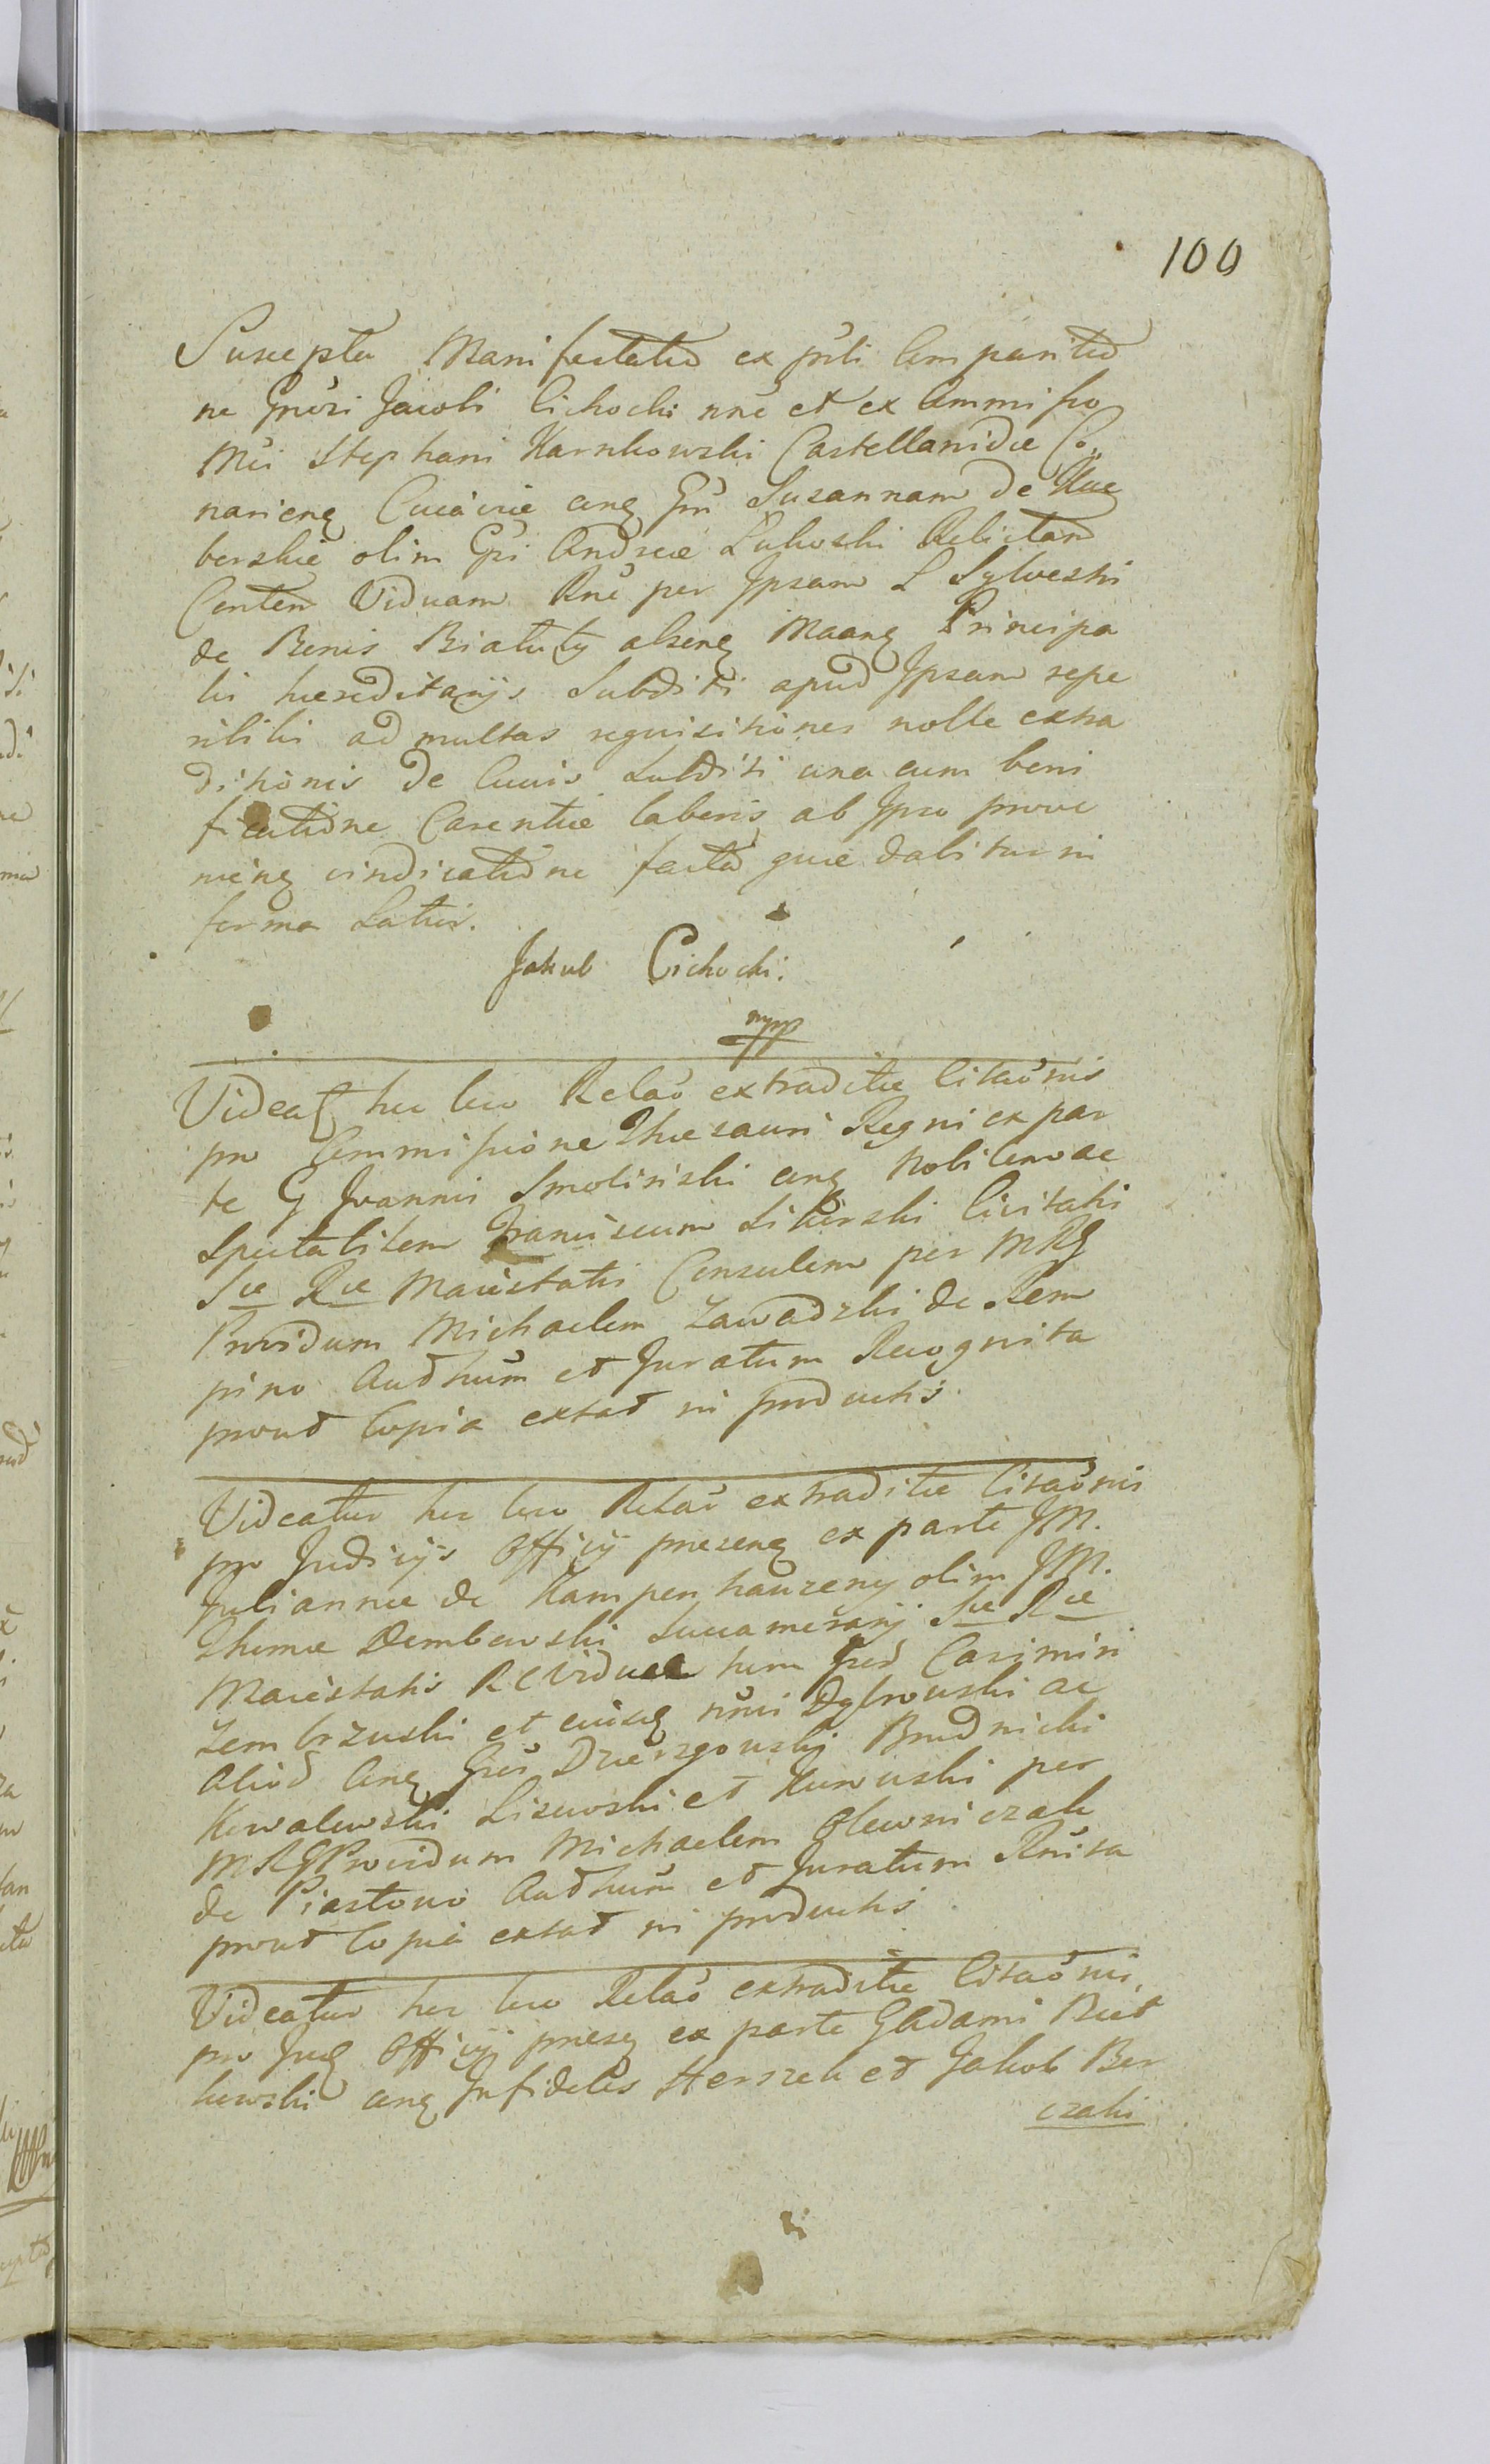 100
Suscepta Manifestatio ex pñti Comparitio
ne Gñosi Jacobi Cichocki nñe et ex Commisso
Mci Stephani Karnkowski Castellanidæ Co„
narienẽ Cuiaviæ conẽ Gñ Susannam de
berskie olim Gsi Andreæ Lukoski Relictam
Conten Viduam Rñe per Ipsam L Sylvestri
de Benis Białuty absenẽ Maanẽ Principa
lis hæreditarijs Subditi apud Ipsam repe
ribilis ad multas requisitiones nolle extra
ditionis de Cuius Subditi una cum beni
ficatione Carentiæ laboris ab Ipso prove
nienẽ vindicatione facta quæ dabitur in
forma Latius.
Jakub Cichocki:
mpp
Videat hic loco Relaõ extraditæ Citaõnis
pro Commissione Thesauri Regni ex par
te G Joannis Smolinski conẽ Nobilem ac
Spectabilem Franciscum Sikorski Civitatis
Sæ Ræ Maiestatis Consulem per MRG
Providum Michaelem Zawadzki de Rem
pino Authum et Juratum Recognita
prout Copia extat in productis.
Videatur hic loco Relaõ extraditæ Citaõnis
pro Judicijs Officij presenẽ ex parte JM.
Juliannæ de Kampenhauzeny olim JM.
Thomæ Dembowski Succamerarij Sæ Ræ
Maiestatis RC Viduæ tum Casimiri
Zembrzuski et cuiusẽ nñi Dąbrowski ac
Aliod Conẽ Gñs Dzierzgowski Brudnicki
Kowalewski Lisowski et Kurowski per
MRG Providum Michaelem Olewniczak
de Piastowo Authum et Juratum Rñita
prout Copia extat in productis.
Videatur hic loco Relaõ extraditæ Citaõnis
pro Judẽ Officij presẽ ex parte G Adami Biet
kowski conẽ Infideles Herszek et Jakob Ber
czaki